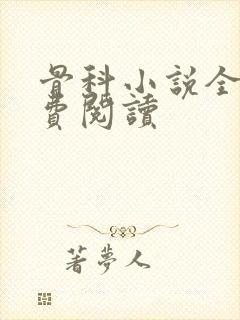 骨科小說全
費閱讀
著夢人